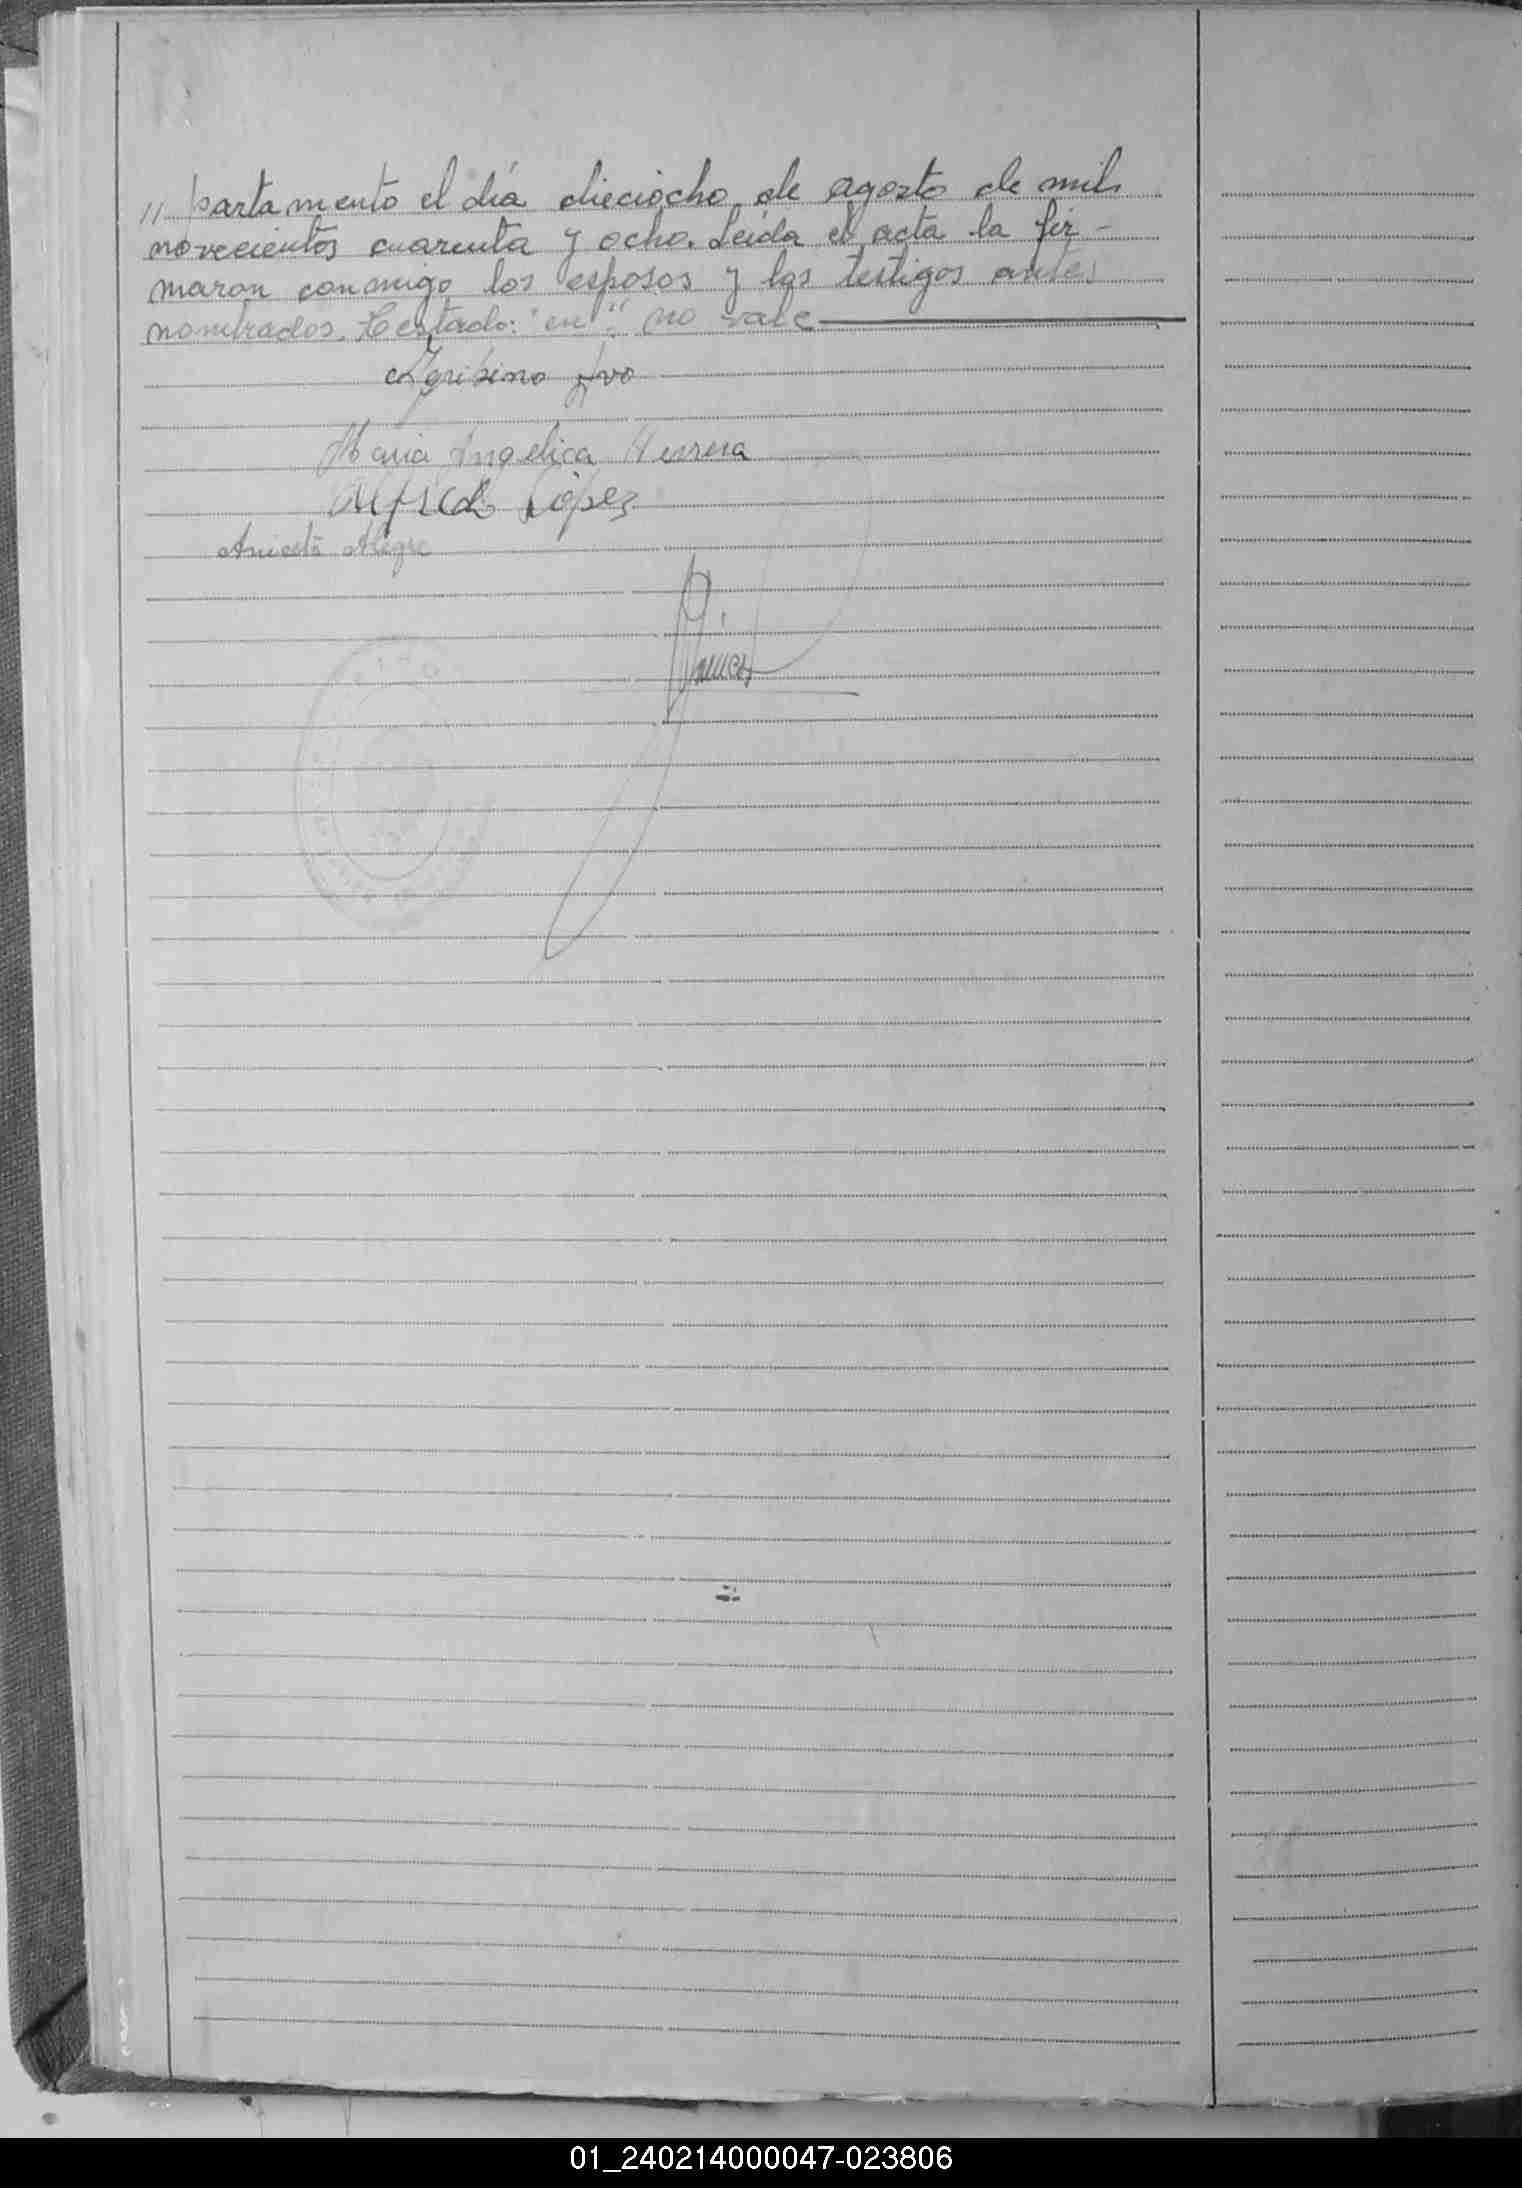 " partamento el día dieciocho de agosto de mil
novecientos cuarenta y ocho. Leída el acta la fir-
maron conmigo los esposos y los testigos antes
nombrados. Testado: "en": no vale
Ivo
María Angélica Herrera
Alfredo López
Aniceto Alegre
01_240214000047-023806